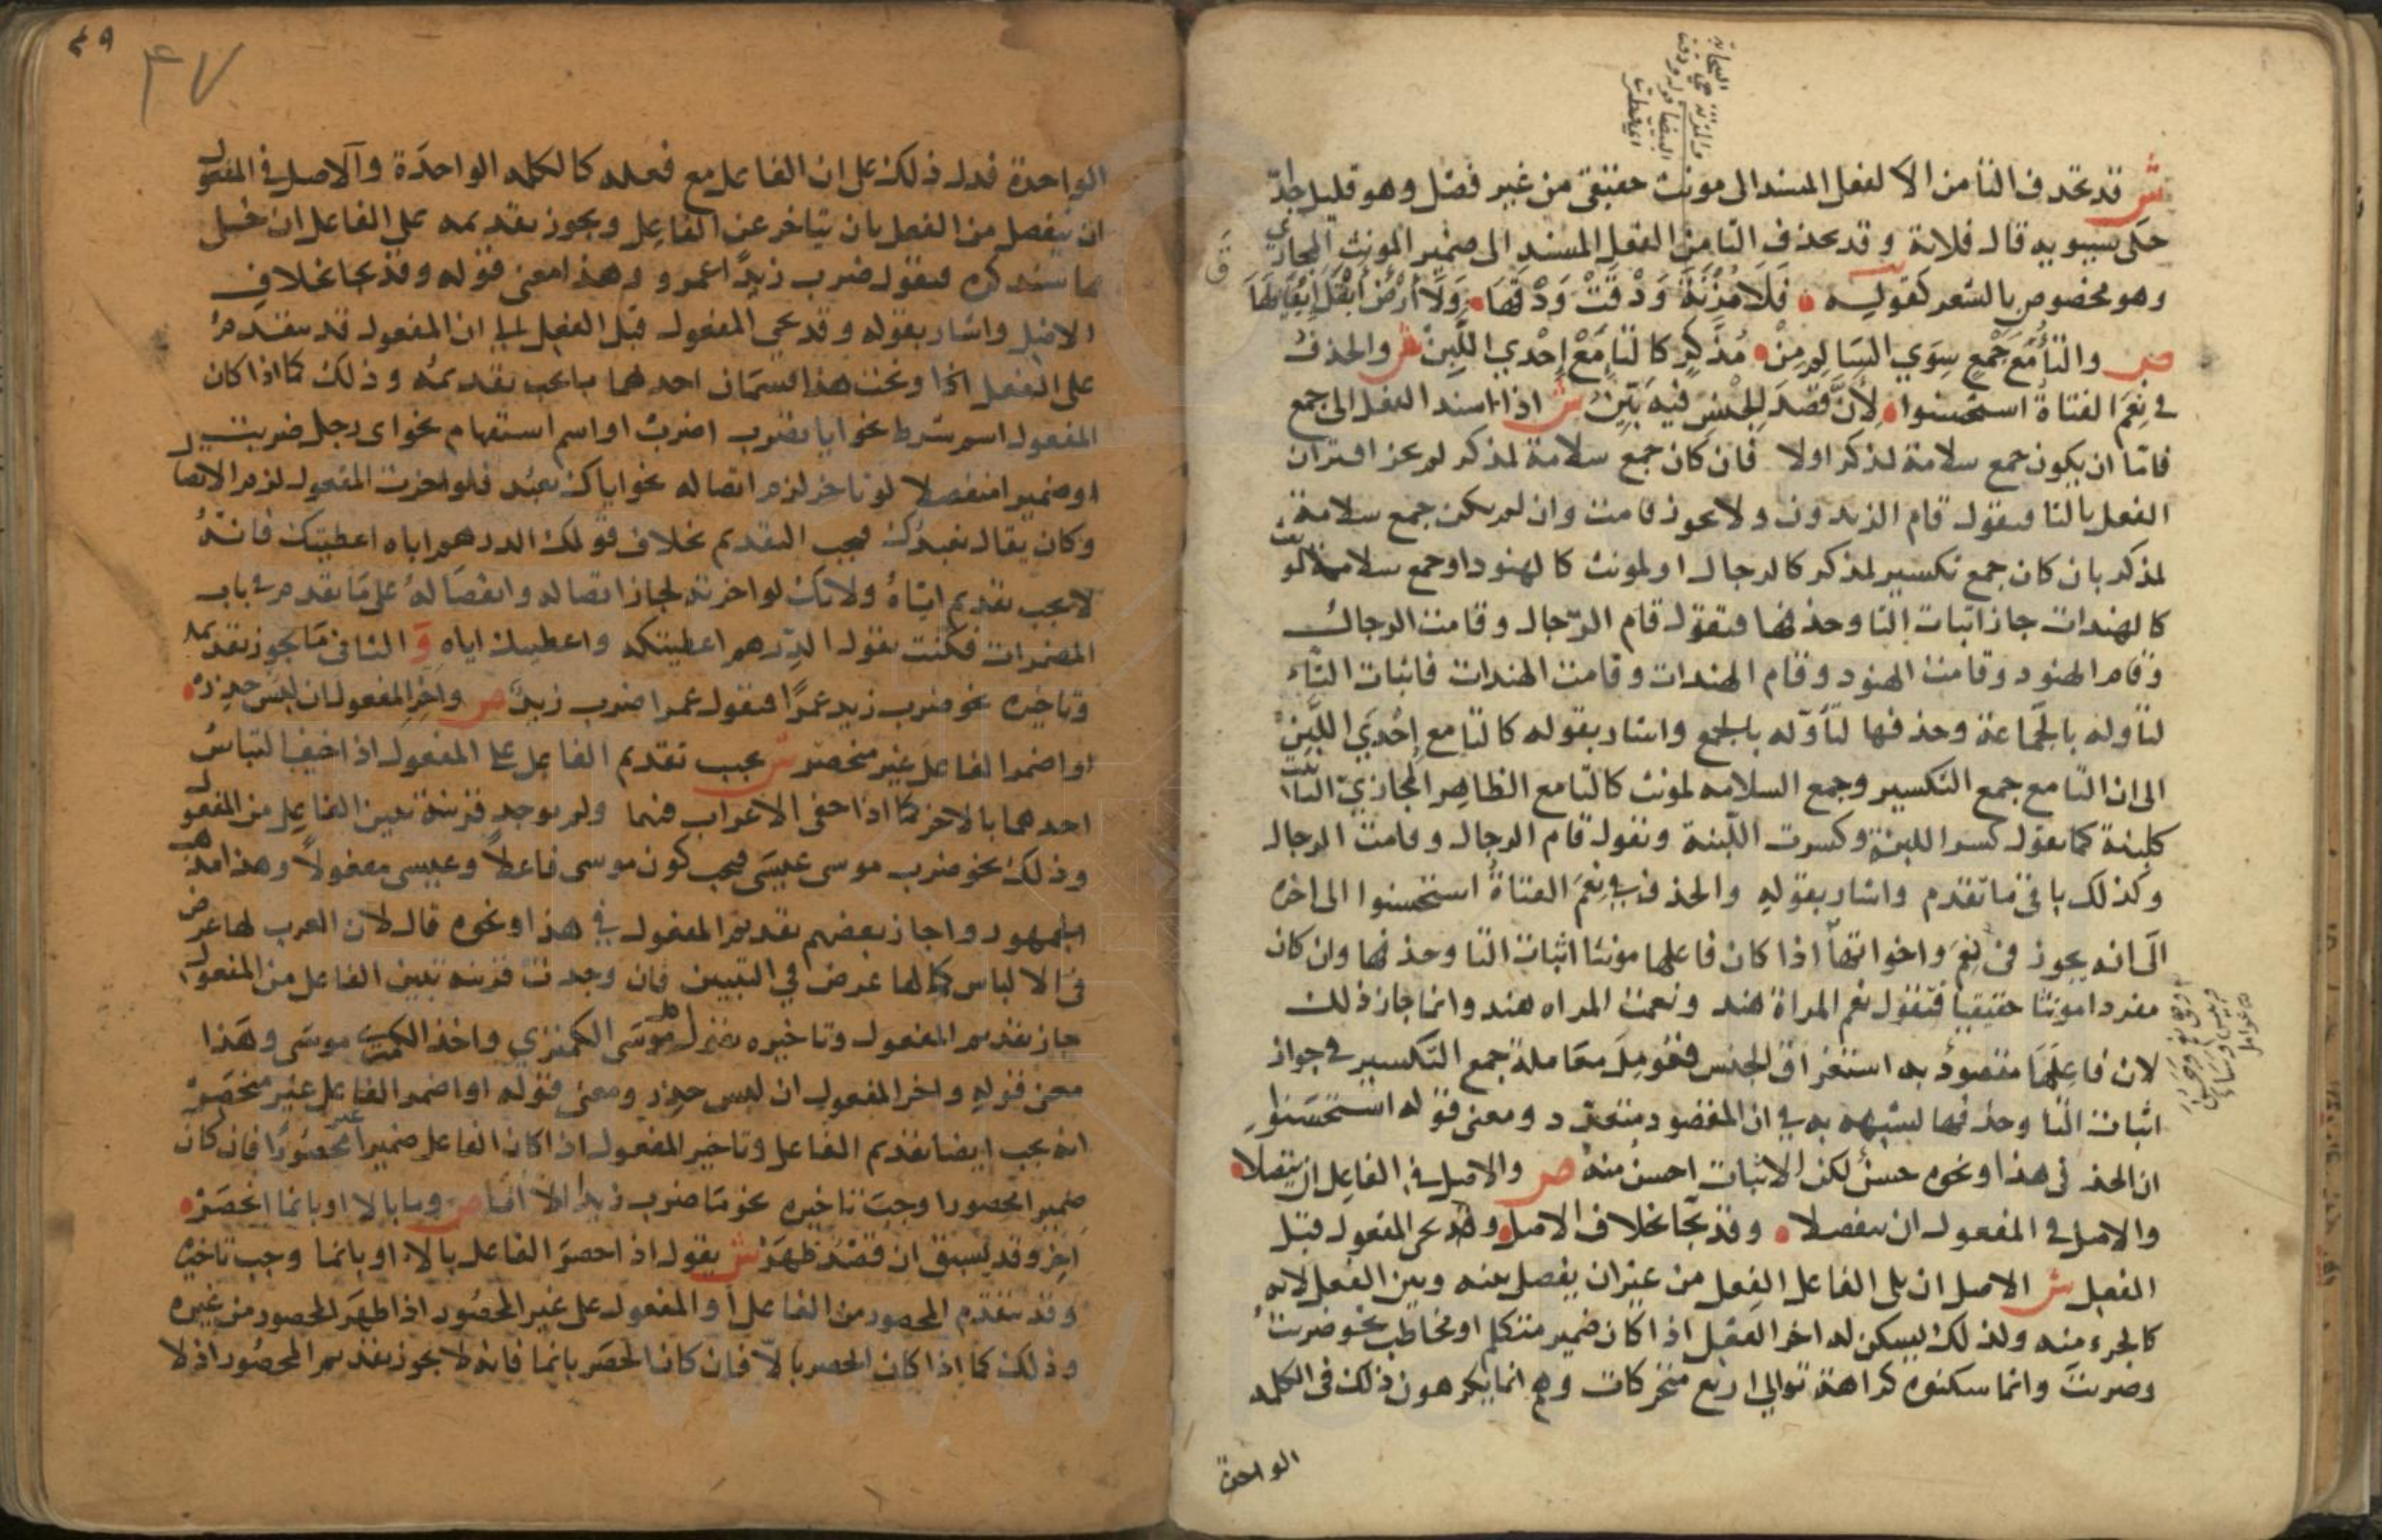 ش قد تحذف التا من الا لفعل المسند الى مونث حقيقي من غير فصل وهو قليل جدا
حكى سيبويه قال فلانة وقد تحذف التا من الفعل المسند الى ضمير المونث المجازي
وهو مخصوص بالشعر كقوله فَلَا مُزْنَةٌ وَدْقَتْ وَدْقَهَا وَلَا أَرْضَ أَبْقَلَ إِبْقَالَهَا
ص والتَّأُ مَعْ جَمْعٍ سِوَي السَالِمِ مِنْ مُذَّكِرٍ كالتَّاءِ مَعْ إِحْدَي اللَّبِنْ ش والحذف
في نِعْمَ الفتاة استحسنوا لِأَنَّ قَصْدَ الجِنْسِ فيه بَيِّنُ ش اذا اسند الفعل الى جمع
فاما ان يكون جمع سلامة لمذكر اولا فان كان جمع سلامة لمذكر لم يجز اقتران
الفعل بالتا فيقول قام الزيدون ولا يجوز قامت وان لم يكن جمع سلامة
لمذكر بان كان جمع تكسير لمذكر كالرجال او لمونث كالهنود او جمع سلامة لمونث
كالهندات جاز اثبات التا وحذفها فتقول قام الرّجال وقامت الرجال
وقام الهنود وقامت الهنود وقام الهندات وقامت الهندات فاثبات التّاء
لتأوله بالجَماعة وحذفها لتأوّله بالجمع واشار بقوله كالتا مع إِحْدَي اللَّبِنْ
الى ان التا مع جمع التكسير وجمع السلامه لمونث كالتا مع الظاهر المجازيّ التانيث
كلبنة كما تقول كسر اللبنة وكسرت اللّبنة وتقول قام الرجال وقامت الرجال
وكذلك باقي ما تقدم واشار بقوله والحذف في نِعْمَ الفتاةُ استحسنوا الى اخره
الى انه يجوز في نِعْمَ واخواتها اذا كان فاعلها مونثا اثبات التا وحذفها وان كان
مفردا مونثا حقيقيا فتقول نعم المراة هند ونعمت المراه هند وانما جاز ذلك
لان فاعِلَهَا مقصودٌ به استغراق الجنس فعُومِلَ معاملة جمع التكسير في جواز
اثبات التا وحذفها لشبهه به في ان المقصود متعدّد ومعنى قوله استحسَنوا
ان الحذف في هذا ونحوه حسنٌ لكن الاثبات احسن منه ص والاصل في الفاعل ان يتصلا
والاصل في المفعول ان ينفصلا وقد يُجَا بخلاف الاصل وقد يجي المفعول قبل
الفعل ش الاصل ان يلي الفاعل الفعل من غير ان يفصل بينه وبين الفعل لانه
كالجزء منه ولذلك يسكن له اخر الفعل اذا كان ضمير متكلم او مخاطب نحو ضربتُ
وضربتَ وانما سكنوه كراهة توالي اربع متحركات وهم انما يكرهون ذلك في الكلمه
الواحدة
٤٩
٤٧
الواحدة فدل ذلك على ان الفاعل مع فعله كالكلمه الواحدَة والاصل في المفعول
ان ينفصل من الفعل بان يتاخر عن الفاعل ويجوز تقديمه على الفاعل ان خلى
مما سنذكره فتقول ضرب زيدًا عمرو وهذا معنى قوله وقد يجا بخلاف
الاصل واشار بقوله وقد يجي المفعول قبل الفعل الى ان المفعول قد يتقدم
على الفعل اذا وتحت هذا قسمان احدهما ما يجب تقديمُه وذلك كما اذا كان
المفعول اسم شرط نحو ايا تضرب اضرب او اسم استفهام نحو اى رجل ضربت
او ضميرا منفصلا لو تاخر لزم اتصاله نحو اياك نعبد فلو اخرت المفعول لزم الاتصال
وكان يقال نعبدُك فيجب التقديم بخلاف قولك الدرهم اياه اعطيتك فانّهُ
لا يجب تقديم ايّاهُ ولانك لو اخرته لجاز اتصاله وانفصَالهُ على مَا تقدم في باب
المضمرات فكنت تقول الدّرهم اعطيتكه واعطيتك اياه وَ الثاني مَا يجوز تقديمه
وتاخيره نحو ضرب زيد عمرًا فتقول عمرا ضرب زيدٌ ص واخر المفعول ان لبس حذر
او اضمر الفاعل غير منحصر ش يجب تقديم الفاعل على المفعول اذا خيف التباسُ
احدهما بالاخر كما اذا خفى الاعراب فيهما ولم توجد قرينة تبين الفاعل من المفعول
وذلك نحو ضرب موسى عيسَى فيجب كون موسى فاعلاً وعيسى مفعولاً وهذا مذهب
الجمهور واجاز بعضهم تقديم المفعول في هذا ونحوه قال لان العرب لها غرض
في الالباس كما لها غرض في التبيين فان وجدت قرينه تبين الفاعل من المفعول
جاز تقديم المفعول وتاخيره موسَى الكمثري واخذ الكمثري موسَى وهَذا
معنى قوله واخر المفعول ان لبس حذر ومعنى قوله او اضمر الفاعل غير منحصَر
انه يجب ايضا تقديم الفاعل وتاخير المفعول اذا كان الفاعل ضميرا غير محصُورٍ فان كان
ضميرا محصورا وجبَ تاخيره نحو مَا ضرب زيدا الاّ انَا ص وما بالا او بانما انحصَرْ
اخِّر وقد يَسبق ان قصْدٌ ظهَرْ ش يقول اذا احصَر الفاعل بالاّ او بانما وجب تاخيره
وقد يتقدم المحصور من الفاعل أو المفعول على غير المحصُور اذا ظهَر المحصور من غيره
وذلك كما اذا كان الحصر بالاّ فان كان الحصَر بانما فانه لا يجوز تقديم المحصُور اذ لا